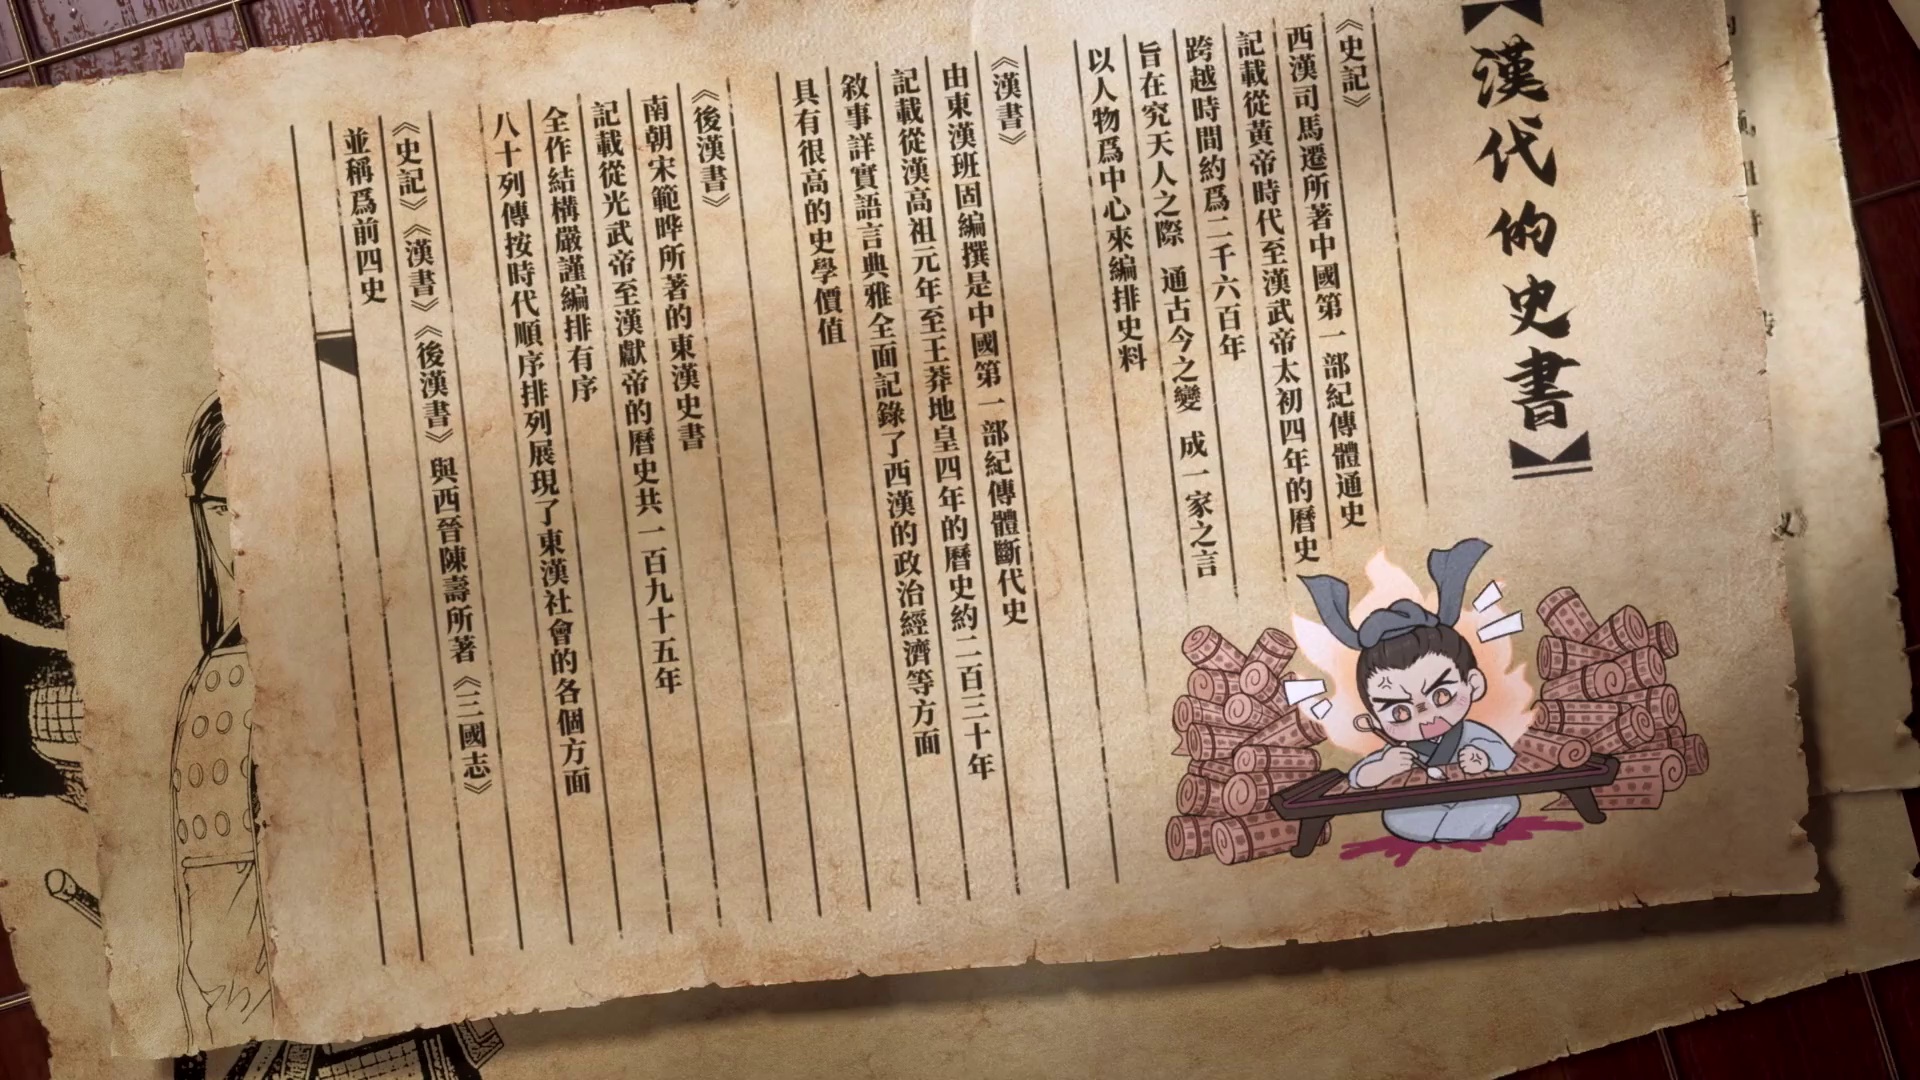 【漢代的史書】
《史記》
西漢司馬遷所著中國第一部紀傳體通史
記載從黃帝時代至漢武帝太初四年的曆史
跨越時間約爲二千六百年
旨在究天人之際 通古今之變 成一家之言
以人物爲中心來編排史料
《漢書》
由東漢班固編撰是中國第一部紀傳體斷代史
記載從漢高祖元年至王莽地皇四年的曆史約二百三十年
敘事詳實語言典雅全面記錄了西漢的政治經濟等方面
具有很高的史學價值
《後漢書》
南朝宋範曄所著的東漢史書
記載從光武帝至漢獻帝的曆史共一百九十五年
全作結構嚴謹編排有序
八十列傳按時代順序排列展現了東漢社會的各個方面
《史記》《漢書》《後漢書》與西晉陳壽所著《三國志》
並稱爲前四史